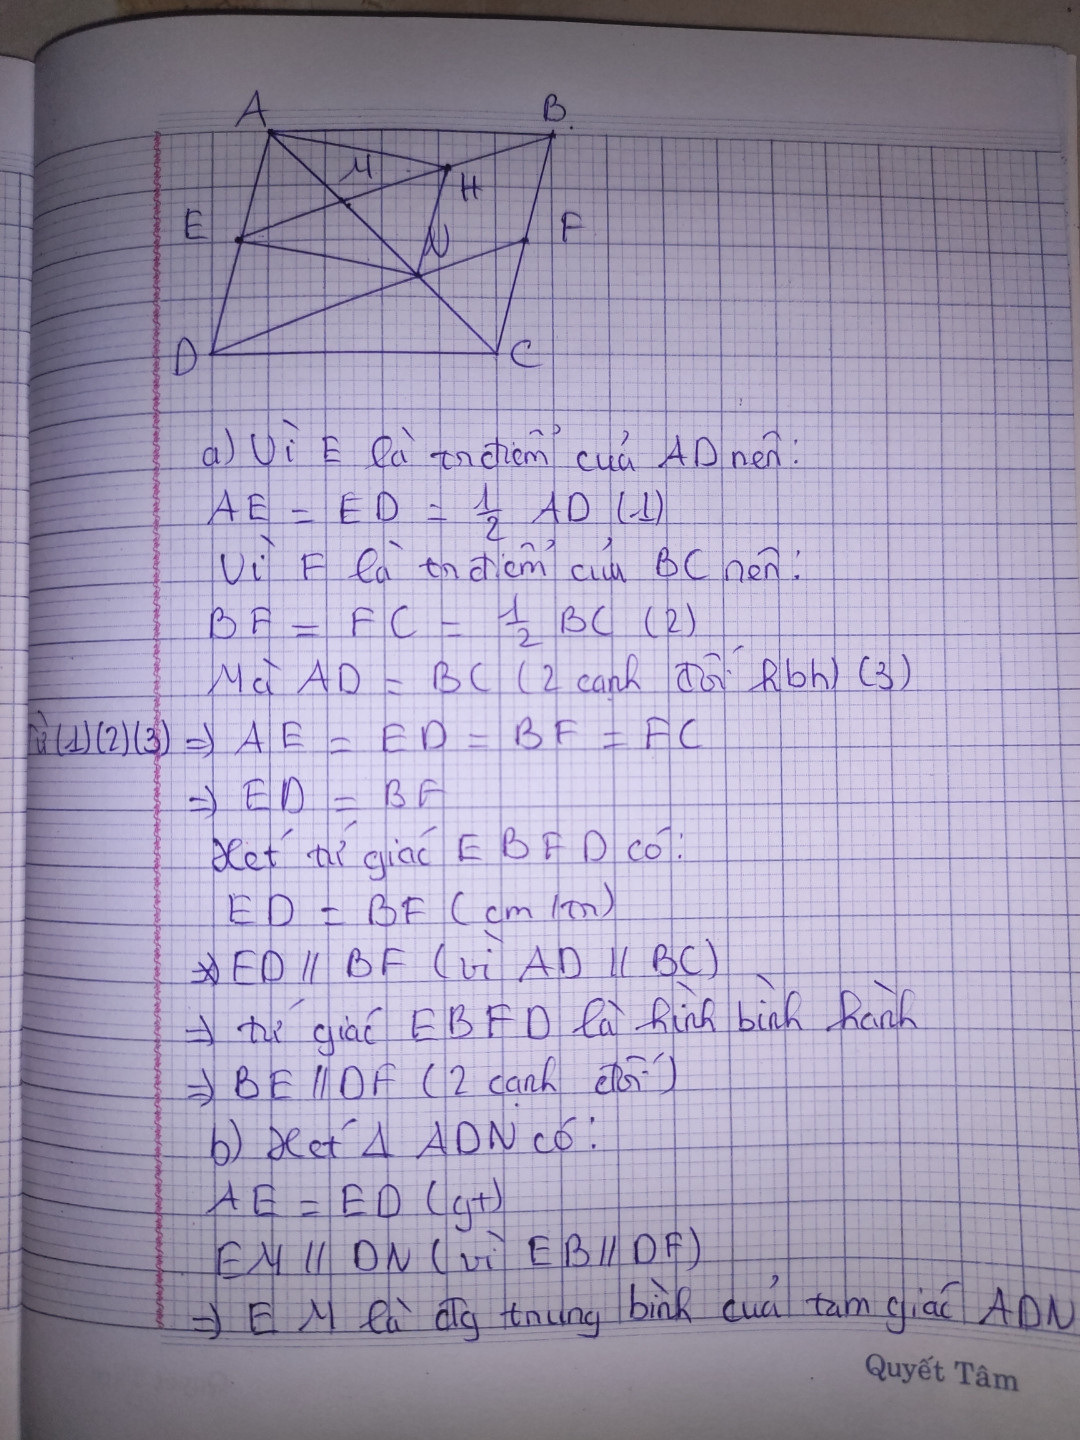 A B.
M
H
E N F
D C
a) Vì E là trđiểm của AD nên:
AE = ED = 1/2 AD (1)
Vì F là trđiểm của BC nên:
BF = FC = 1/2 BC (2)
Mà AD = BC (2 cạnh đối hbh) (3)
Từ (1)(2)(3) => AE = ED = BF = FC
=> ED = BF
Xét tứ giác EBFD có:
ED = BF (cm trn)
ED // BF (vì AD // BC)
=> tứ giác EBFD là hình bình hành
=> BE // DF (2 cạnh đối)
b) Xét Δ ADN có:
AE = ED (gt)
EM // DN (vì EB // DF)
=> EM là đg trung bình của tam giác ADN
Quyết Tâm